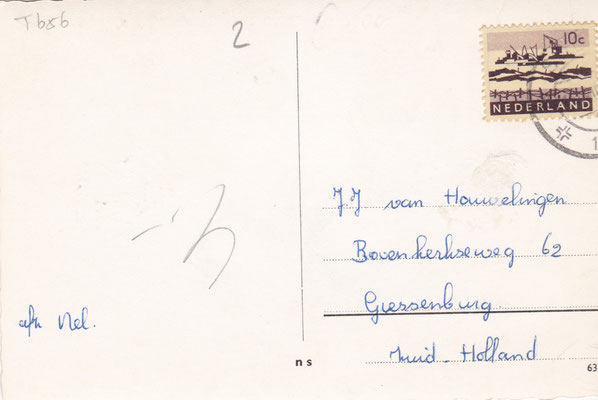 T656
2
10c
NEDERLAND
JJ van Houwelingen
Bovenkerkseweg 62
Giessenburg
Zuid-Holland
afz Nel.
n s
63